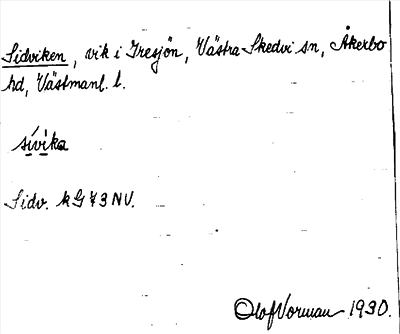 Sidviken, vik i Iresjön, Västra Skedvi sn, Åkerbo
hd, Västmanl. l.
sívika
Sidv. k G 43 NV.
Olof Vorman 1930.